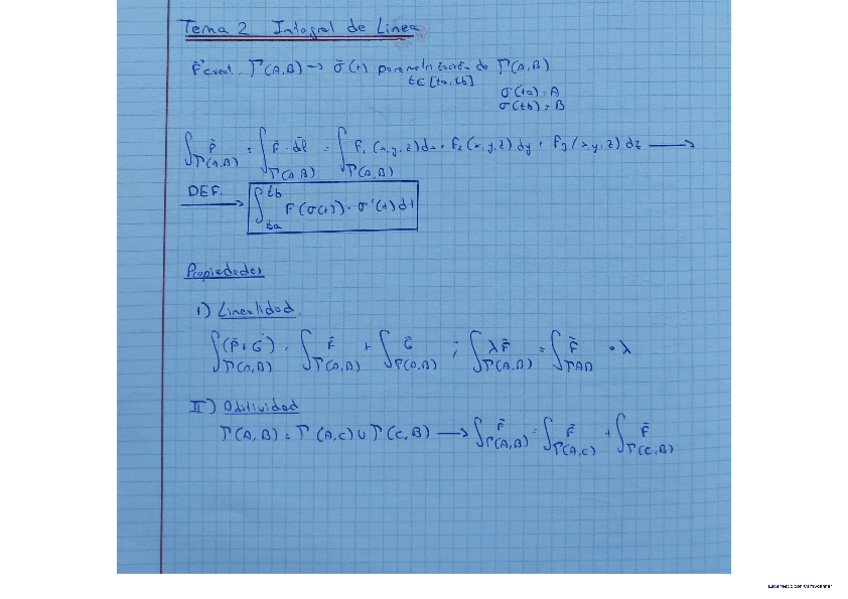 Tema 2 Integral de Linea
F̄ Γ(A,B) → σ̄(t) parametrización de Γ(A,B)
t∈[ta,tb]
σ(ta)=A
σ(tb)=B
∫Γ(A,B) F̄ = ∫Γ(A,B) F̄·dl̄ = ∫Γ(A,B) F₁(x,y,z)dx + F₂(x,y,z)dy + F₃(x,y,z)dz →
DEF. → ∫ta^tb F(σ(t))·σ'(t)dt
Propiedades
I) Linealidad
∫Γ(A,B) (F̄+Ḡ) = ∫Γ(A,B) F̄ + ∫Γ(A,B) Ḡ ; ∫Γ(A,B) λF̄ = ∫ΓAB F̄ · λ
II) Aditividad
Γ(A,B) = Γ(A,C) ∪ Γ(C,B) → ∫Γ(A,B) F̄ = ∫Γ(A,C) F̄ + ∫Γ(C,B) F̄